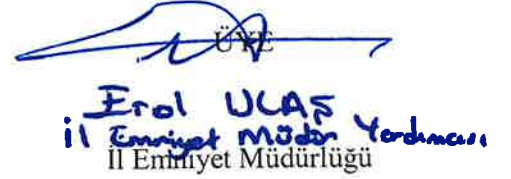 ÜYE
Erol ULAŞ
İl Emniyet Müdür Yardımcısı
İl Emniyet Müdürlüğü